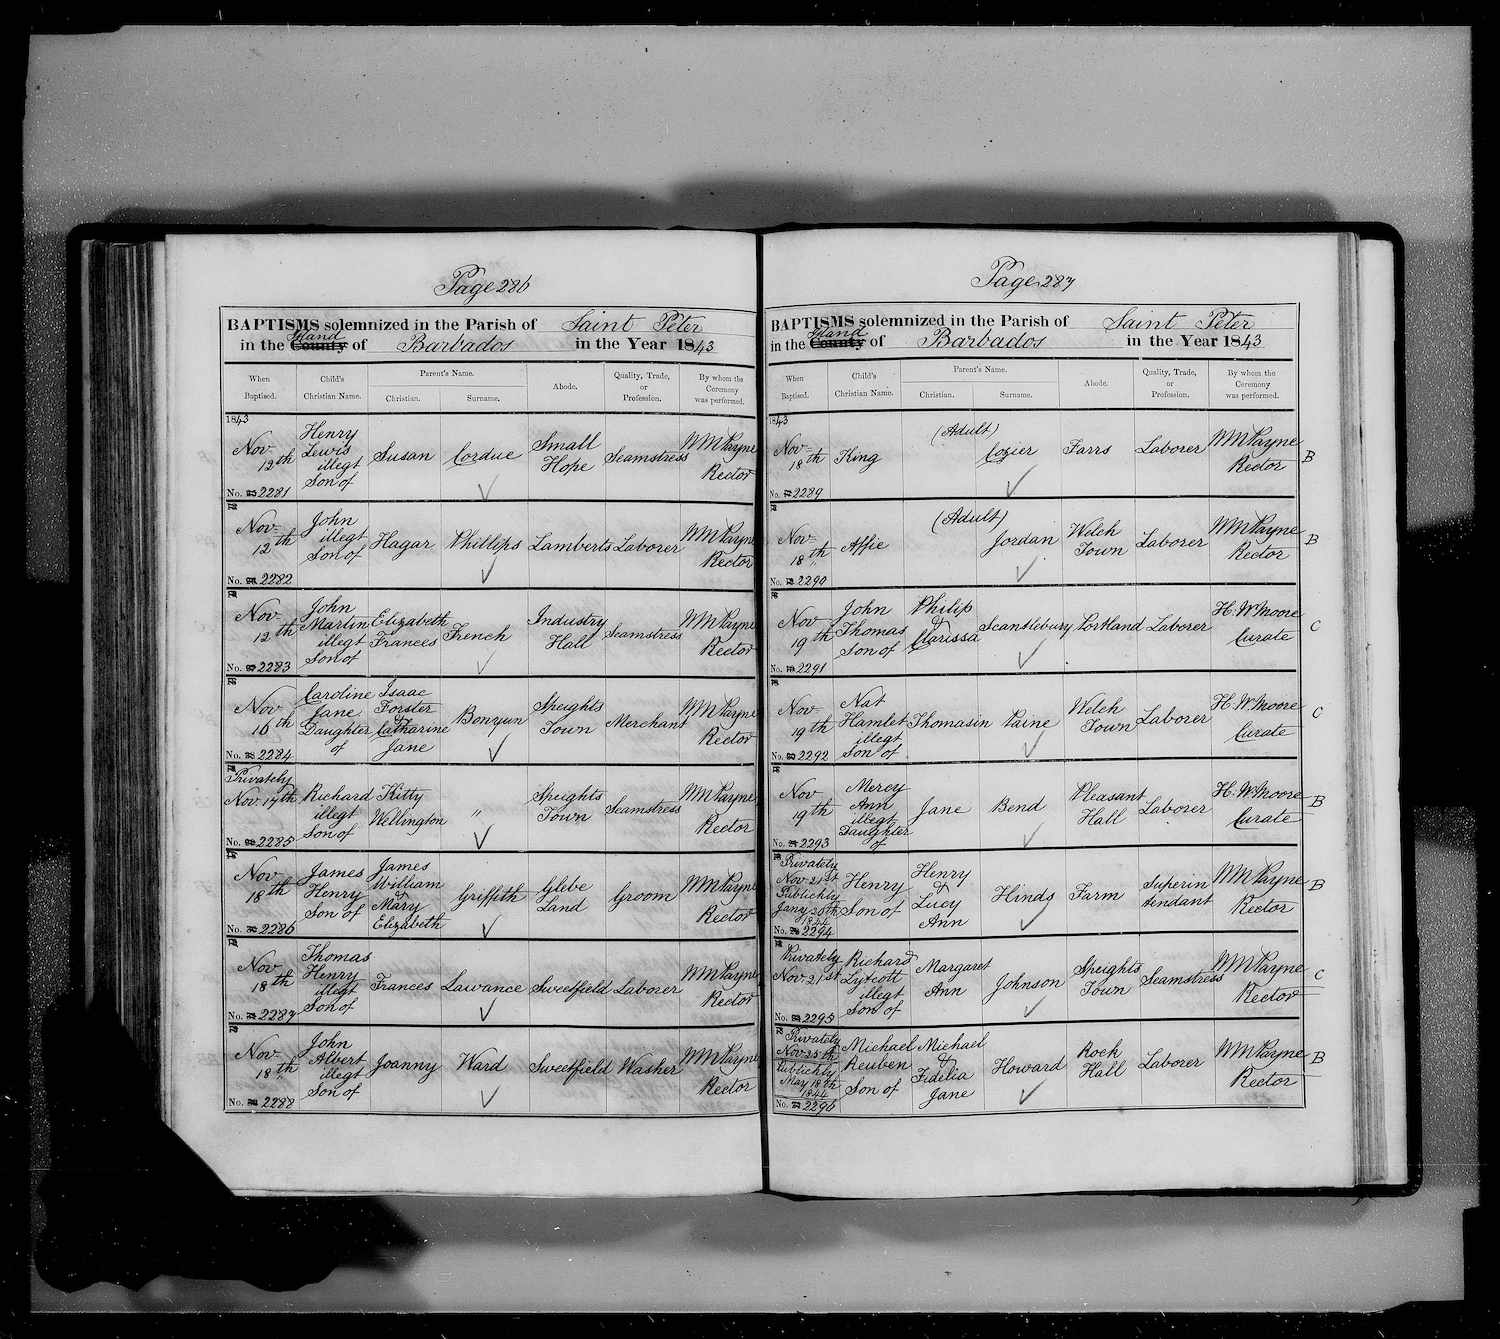 Page 286
BAPTISMS solemnized in the Parish of Saint Peter
Island
in the County of Barbados in the Year 1843
When Baptised. Child's Christian Name. Parent's Name. Christian. Surname. Abode. Quality, Trade, or Profession. By whom the Ceremony was performed.
1843
Nov 12th Henry Lewis illegt Son of Susan Cordue Small Hope Seamstress WM Payne Rector
No. 2281
Nov 12th John illegt Son of Hagar Phillips Lamberts Laborer WM Payne Rector
No. 2282
Nov 12th John Martin illegt Son of Elizabeth Frances French Industry Hall Seamstress WM Payne Rector
No. 2283
Nov 16th Caroline Jane Daughter of Isaac Forster & Catharine Jane Bonyun Speights Town Merchant WM Payne Rector
No. 2284
Privately Nov. 17th Richard illegt Son of Kitty Wellington " Speights Town Seamstress WM Payne Rector
No. 2285
Nov 18th James Henry Son of James William & Mary Elizabeth Griffith Glebe Land Groom WM Payne Rector
No. 2286
Nov 18th Thomas Henry illegt Son of Frances Lawance Sweetfield Laborer WM Payne Rector
No. 2287
Nov 18th John Albert illegt Son of Joanny Ward Sweetfield Washer WM Payne Rector
No. 2288
Page 287
BAPTISMS solemnized in the Parish of Saint Peter
Island
in the County of Barbados in the Year 1843
When Baptised. Child's Christian Name. Parent's Name. Christian. Surname. Abode. Quality, Trade, or Profession. By whom the Ceremony was performed.
1843
Nov 18th King (Adult) Cozier Farrs Laborer WM Payne Rector B
No. 2289
Nov 18th Affie (Adult) Jordan Welch Town Laborer WM Payne Rector B
No. 2290
Nov 19th John Thomas Son of Philip & Clarissa Scantlebury Portland Laborer H. W. Moore Curate C
No. 2291
Nov 19th Nat Hamlet illegt Son of Thomasin Paine Welch Town Laborer H. W. Moore Curate C
No. 2292
Nov 19th Mercy Ann illegt Daughter of Jane Bend Pleasant Hall Laborer H. W. Moore Curate B
No. 2293
Privately Nov 21st Publickly Jany 20th 1844 Henry Son of Henry & Lucy Ann Hinds Farm Superintendant WM Payne Rector B
No. 2294
Privately Nov. 21st Richard Lytcott illegt Son of Margaret Ann Johnson Speights Town Seamstress WM Payne Rector C
No. 2295
Privately Nov 25th Publickly May 18th 1844 Michael Reuben Son of Michael & Fidelia Jane Howard Rock Hall Laborer WM Payne Rector B
No. 2296